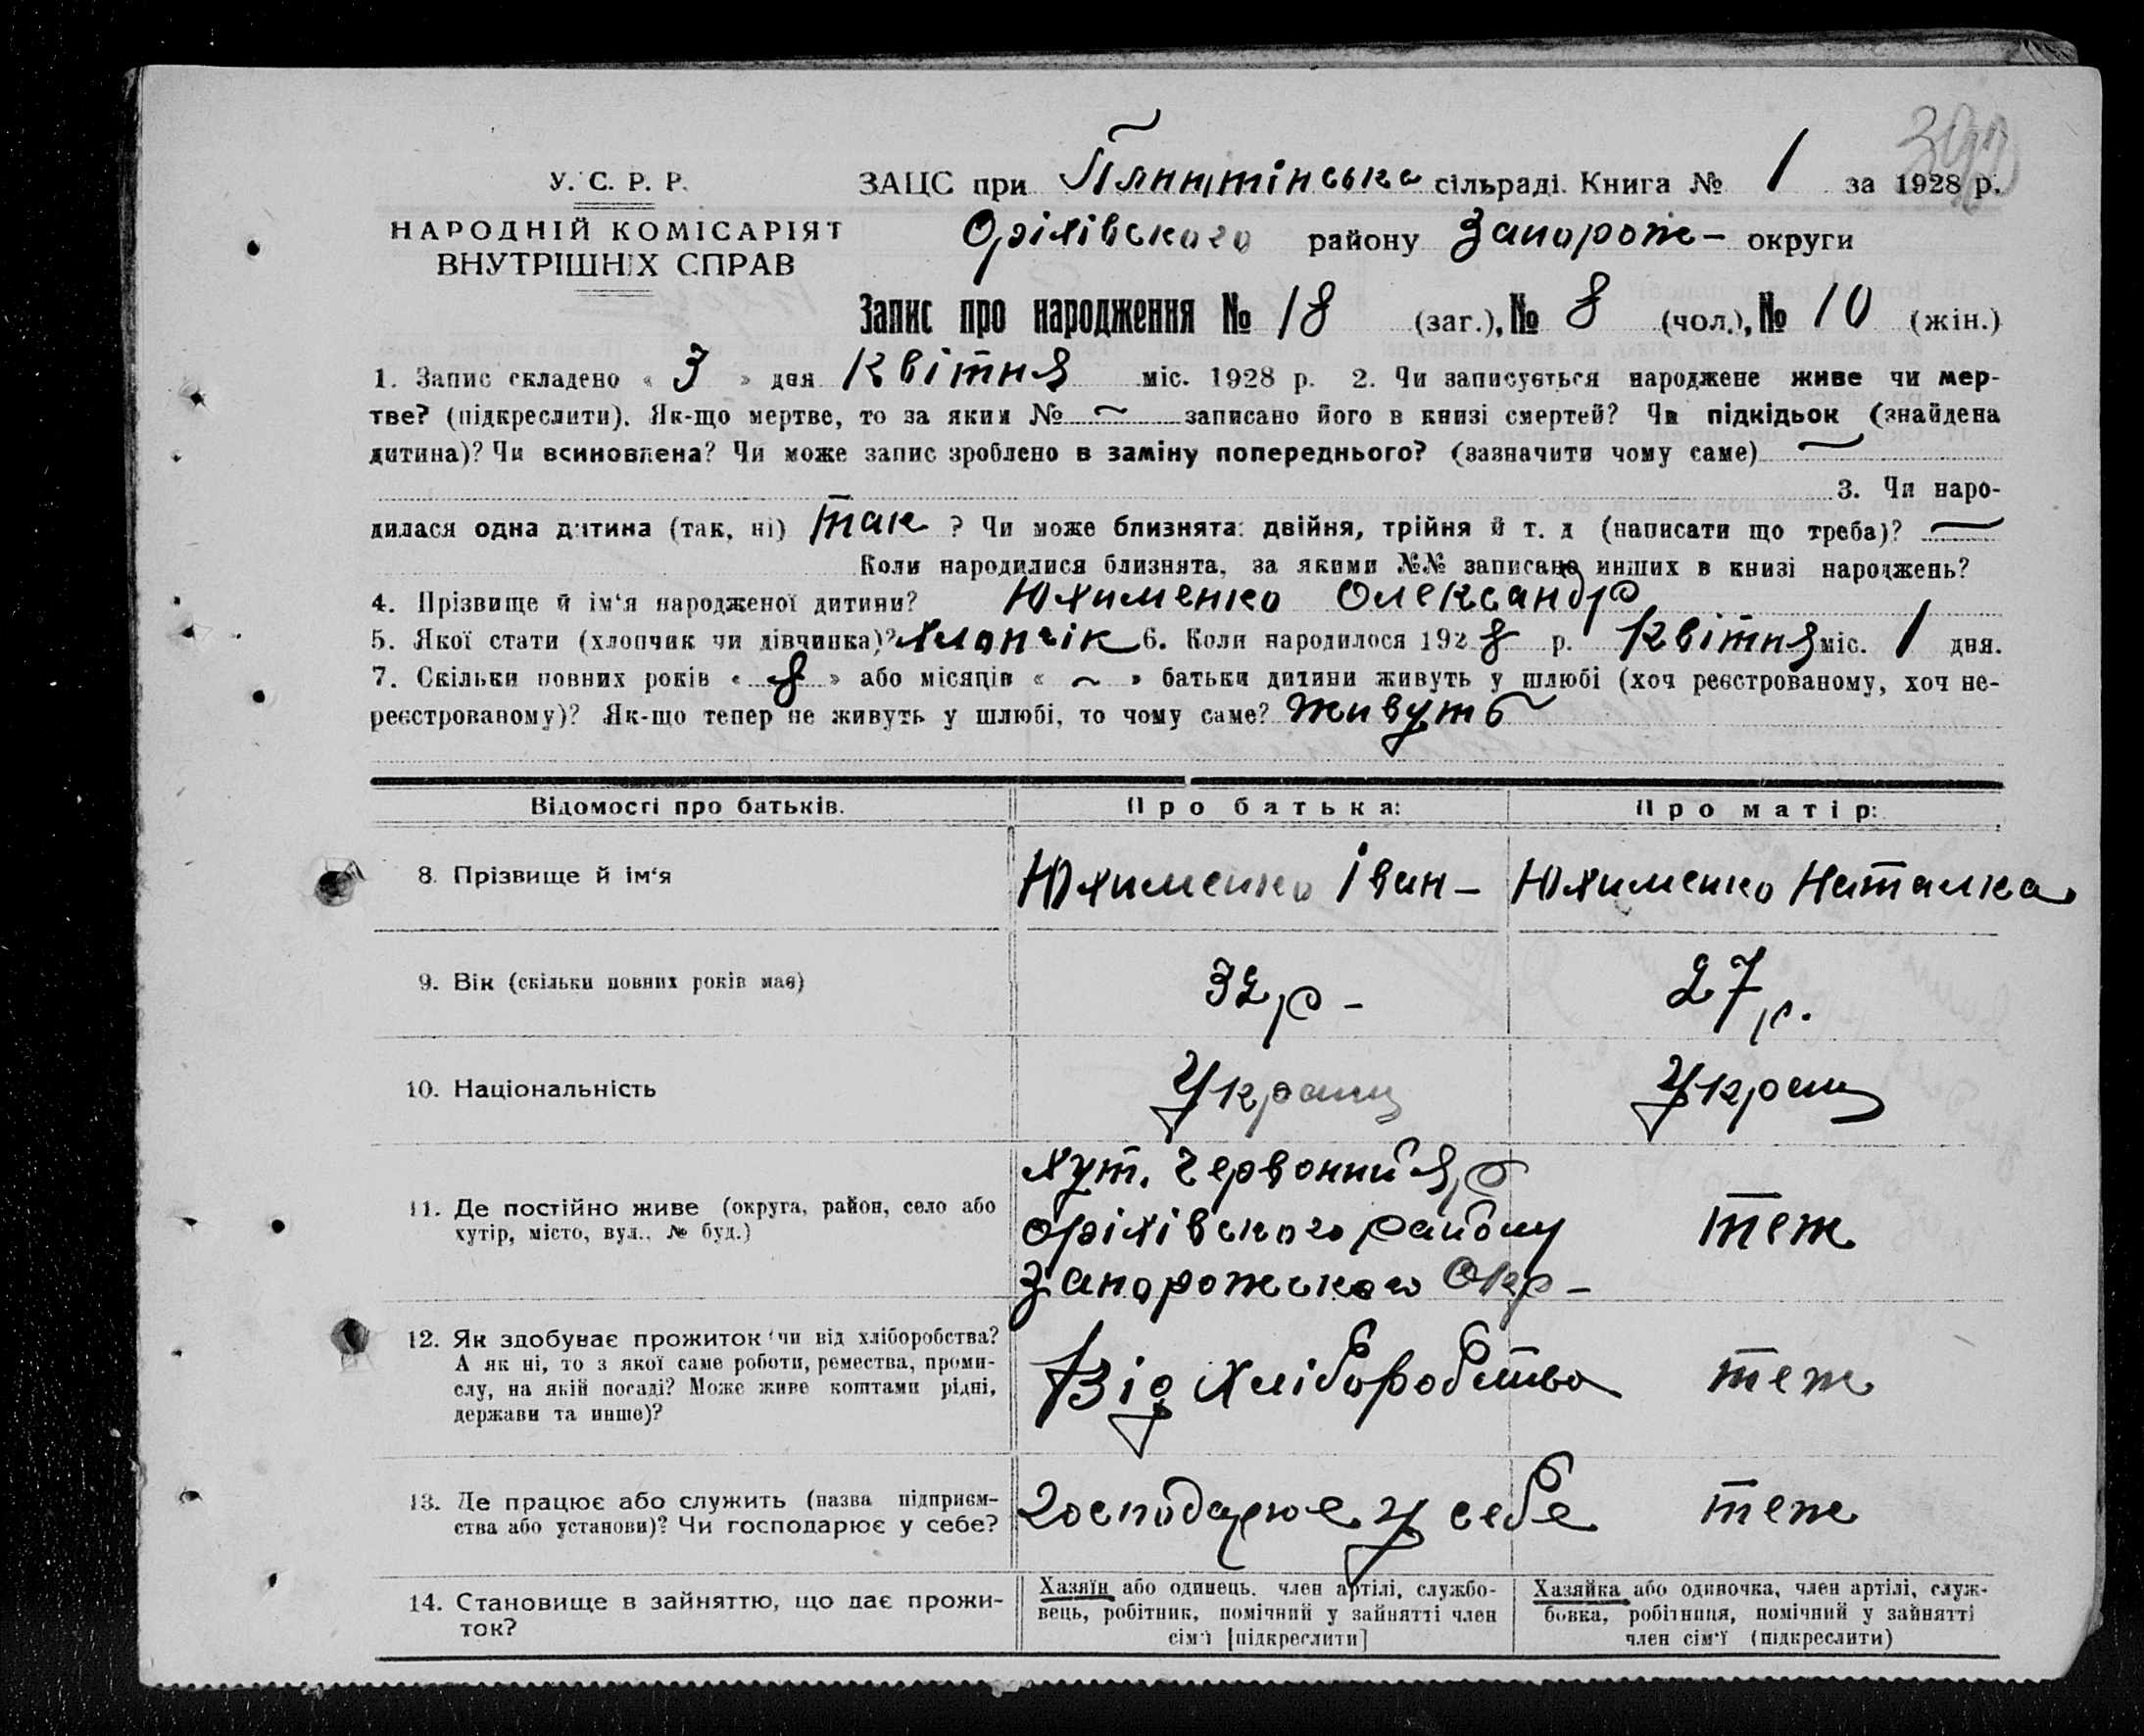 У. С. Р. Р.
НАРОДНІЙ КОМІСАРІЯТ
ВНУТРІШНІХ СПРАВ
ЗАЦС при сільраді. Книга № 1 за 1928 р.
Оріхівського району Запорож- округи
Запис про народження № 18 (заг.), № 8 (чол.), № 10 (жін.)
1. Запис складено « 3 » дня Квітня міс. 1928 р. 2. Чи записується народжене живе чи мер-
тве? (підкреслити). Як-що мертве, то за яким № ~ записано його в книзі смертей? Чи підкідьок (знайдена
дитина)? Чи всиновлена? Чи може запис зроблено в заміну попереднього? (зазначити чому саме) ~
3. Чи наро-
дилася одна дитина (так, ні) так ? Чи може близнята: двійня, трійня й т. д (написати що треба)? ~
Коли народилися близнята, за якими №№ записано инших в книзі народжень?
4. Прізвище й ім‘я народженої дитини? Юхименко Олександр
5. Якої стати (хлопчик чи дівчинка)? Хлопчік 6. Коли народилося 1928 р. Квітня міс. 1 дня.
7. Скільки повних років « 8 » або місяців « ~ » батьки дитини живуть у шлюбі (хоч реєстрованому, хоч не-
реєстрованому)? Як-що тепер не живуть у шлюбі, то чому саме? живуть
Відомості про батьків. Про батька: Про матір:
8. Прізвище й ім‘я Юхименко Іван- Юхименко Наталка
9. Вік (скільки повних років має) 32 р - 27 р.
10. Національність Украинц Украинц
11. Де постійно живе (округа, район, село або
хутір, місто, вул., № буд.)
хут. Червоний Яр
оріхівського району
Запорожського Окр-
теж
12. Як здобуває прожиток чи від хліборобства?
А як ні, то з якої саме роботи, ремества, проми-
слу, на якій посаді? Може живе коштами рідні,
держави та инше)?
Від Хліборобства теж
13. Де працює або служить (назва підприєм-
ства або установи)? Чи господарює у себе?
Господарює у себе теж
14. Становище в зайняттю, що дає прожи-
ток?
Хазяїн або одинець, член артілі, службо-
вець, робітник, помічний у зайнятті член
сім‘ї [підкреслити]
Хазяйка або одиночка, член артілі, служ-
бовка, робітниця, помічний у зайнятті
член сім‘ї (підкреслити)